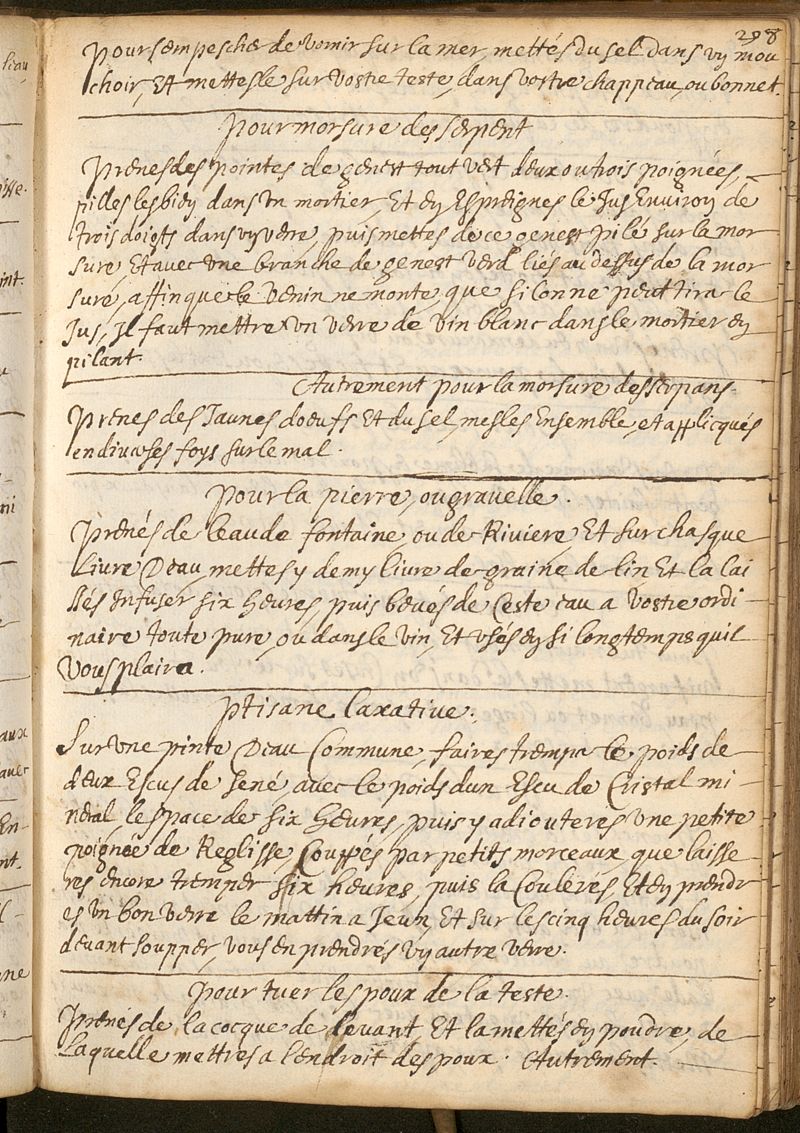 298
Pour sempescher de vomir sur la mer, mettés du sel dans vn mou
choir, Et mettes le sur vostre teste, dans vostre chappeau, ou bonnet.
Pour morsure des serpent
Prenes des pointes de genest tout vert deux ou trois poignées,
pilles les bien dans vn mortier, Et en Espreignes le Jus Enuiron de
trois doigts dans vn verre, puis mettes de ce genest pilé sur la mor
sure, Et avec vne branche de genest verd liés au dessus de la mor
sure, affin que le venin ne monte, que si lon ne peut tirer le
Jus, Il faut mettre vn verre de vin blanc dans le mortier en
pilant.
Autrement pour la morsure des serpans-
Prenes des Jaunes doeufs Et du sel, mesles Ensemble, et applicqués
en diverses foys sur le mal.
Pour la pierre, ou gravelle.
Prenés de leau de fontaine ou de Riviere, Et sur chasque
Livre Deau, mettes y demy livre de graine de lin Et la lai
ssés Infuser six heures, puis beués de Ceste eau a vostre ordi
naire toute pure, ou dans le vin, Et vsés en si longtemps quil
vous plaira.
Ptisane Laxative.
Sur vne pinte Deau Commune, faires tremper le poids de
deux Escus de sené, avec le poids dun Escu de Cristal mi
neral, lespace de six heures, puis y adiouteres vne petite
poignée de Reglisse, Couppés par petits morceaux, que laisse
res encore tremper six heures, puis la Couleres, Et en prendr
es vn bon verre le mattin a Jeun, Et sur les cinq heures du soir
devant soupper, vous en prendrés vn autre verre.
Pour tuer les poux de la teste.
Prenés de la cocque de levant, Et la mettés en poudre, de
Laquelle mettres a lendroit des poux. Autrement.